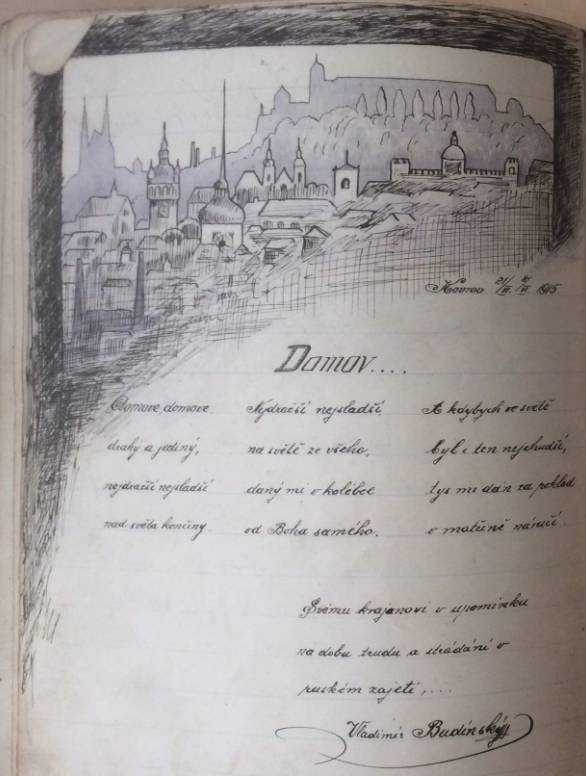 Kovrov 21/III. 8/III 1915
Domov....
Domove, domove
drahý a jediný,
nejdražší nejsladší
nad světa končiny.
Nejdražší nejsladší
na světě ze všeho,
daný mi v kolébce
od Boha samého.
A kdybych ve světě
byl i ten nejchudší,
tys mi dán za poklad
v matčině náručí.
Svému krajanovi v upomínku
na dobu trudu a strádání v
ruském zajetí,...
Vladimír Budínský